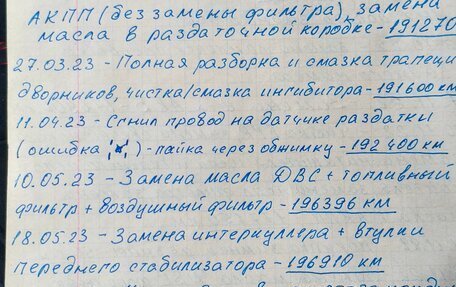 АКПП (без замены фильтра), замена
масла в раздаточной коробке - 191270
27.03.23 - Полная разборка и смазка трапеци
дворников, чистка/смазка ингибитора - 191600 км
11.04.23 - Сгнил провод на датчике раздатки
(ошибка ) - пайка через обжимку - 192400 км
10.05.23 - Замена масла ДВС + топливный
фильтр + воздушный фильтр - 196396 км
18.05.23 - Замена интеркуллера + втулки
переднего стабилизатора - 196910 км